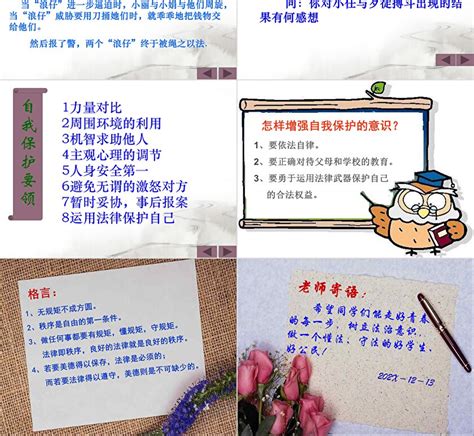 当“浪仔”进一步逼迫时，小丽与小娟与他们周旋，
当“浪仔”威胁要用刀捅她们时，就乖乖地把钱物交
给他们。
然后报了警，两个“浪仔”终于被绳之以法.
问：你对小任与歹徒搏斗出现的结
果有何感想
自我保护要领
1力量对比
2周围环境的利用
3机智求助他人
4主观心理的调节
5人身安全第一
6避免无谓的激怒对方
7暂时妥协，事后报案
8运用法律保护自己
怎样增强自我保护的意识?
1、要依法自律。
2、要正确对待父母和学校的教育。
3、要勇于运用法律武器保护自己
的合法权益。
格言：
1、无规矩不成方圆。
2、秩序是自由的第一条件。
3、做任何事都要有规矩，懂规矩，守规矩。
法律即秩序，良好的法律就是良好的秩序。
4、若要美德得以保存，法律是必须的；
而若要法律得以遵守，美德则是不可缺少的。
老师寄语：
希望同学们能走好青春
的每一步，树立法治意识，
做一个懂法、守法的好学生、
好公民！
202X-12-13